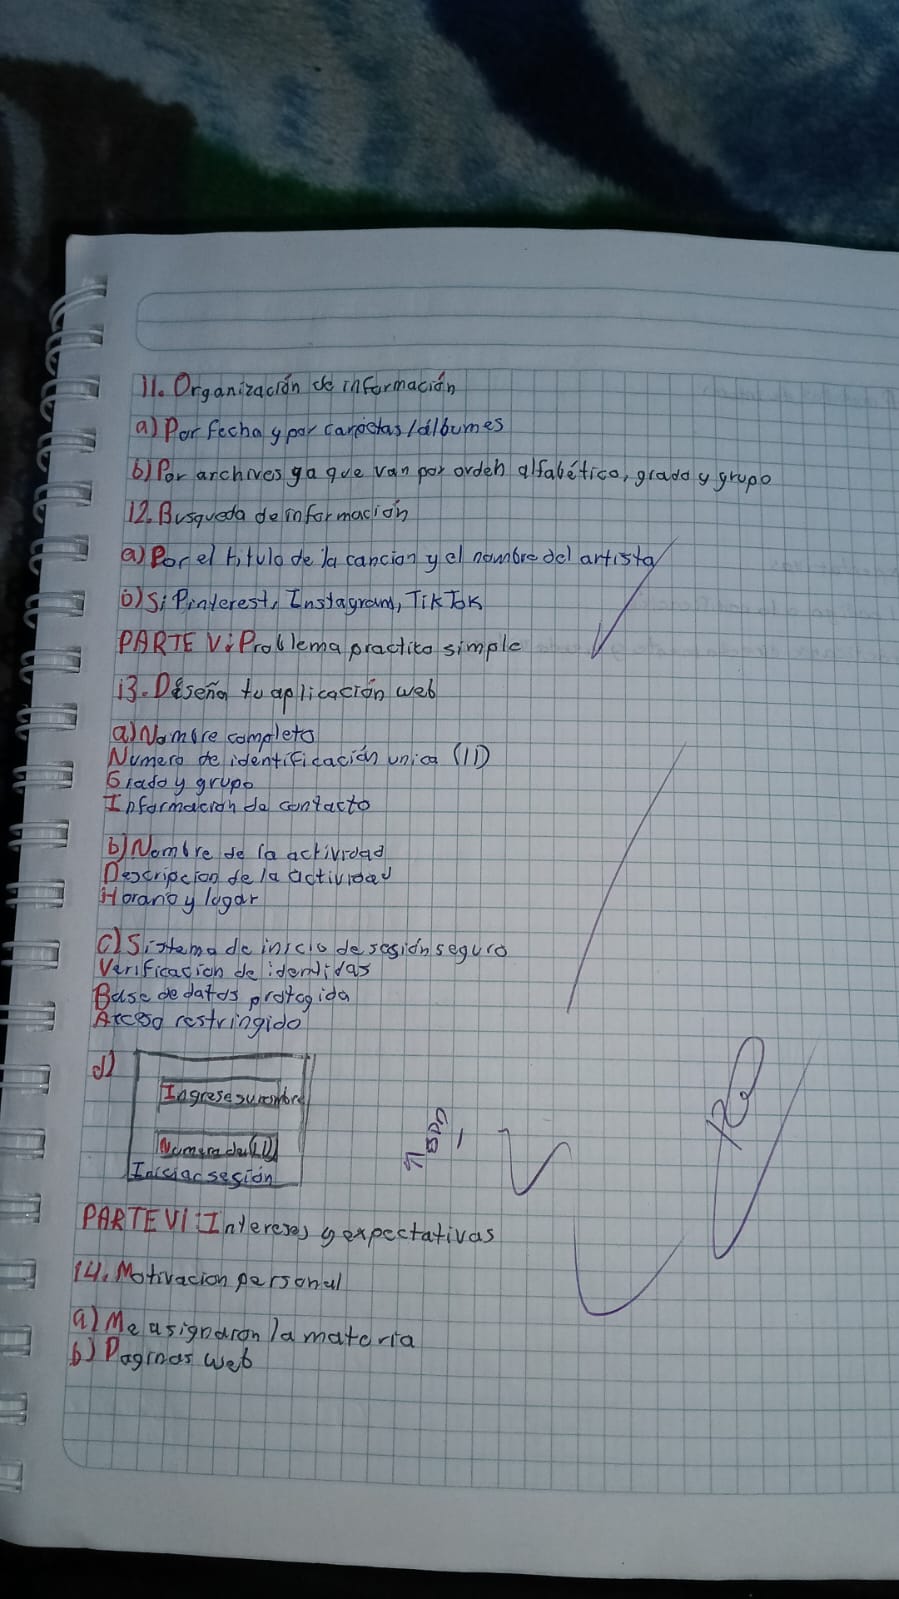 11. Organización de información
a) Por fecha y por carpetas/álbumes
b) Por archives ya que van por orden alfabético, grado y grupo
12. Busqueda de información
a) Por el titulo de la cancion y el nombre del artista
b) Si Pinterest, Instagram, TikTok
PARTE V: Problema practico simple
13. Diseña tu aplicación web
a) Nombre completo
Numero de identificación unica (ID)
Grado y grupo
Informacion de contacto
b) Nombre de la actividad
Descripcion de la actividad
Horario y lugar
c) Sistema de inicio de sesión seguro
Verificacion de identidas
Base de datos protegida
Acceso restringido
d)
Ingrese su nombre
Numero de (ID)
Iniciar sesión
PARTE VI: Intereses y expectativas
14. Motivacion personal
a) Me asignaron la materia
b) Paginas web